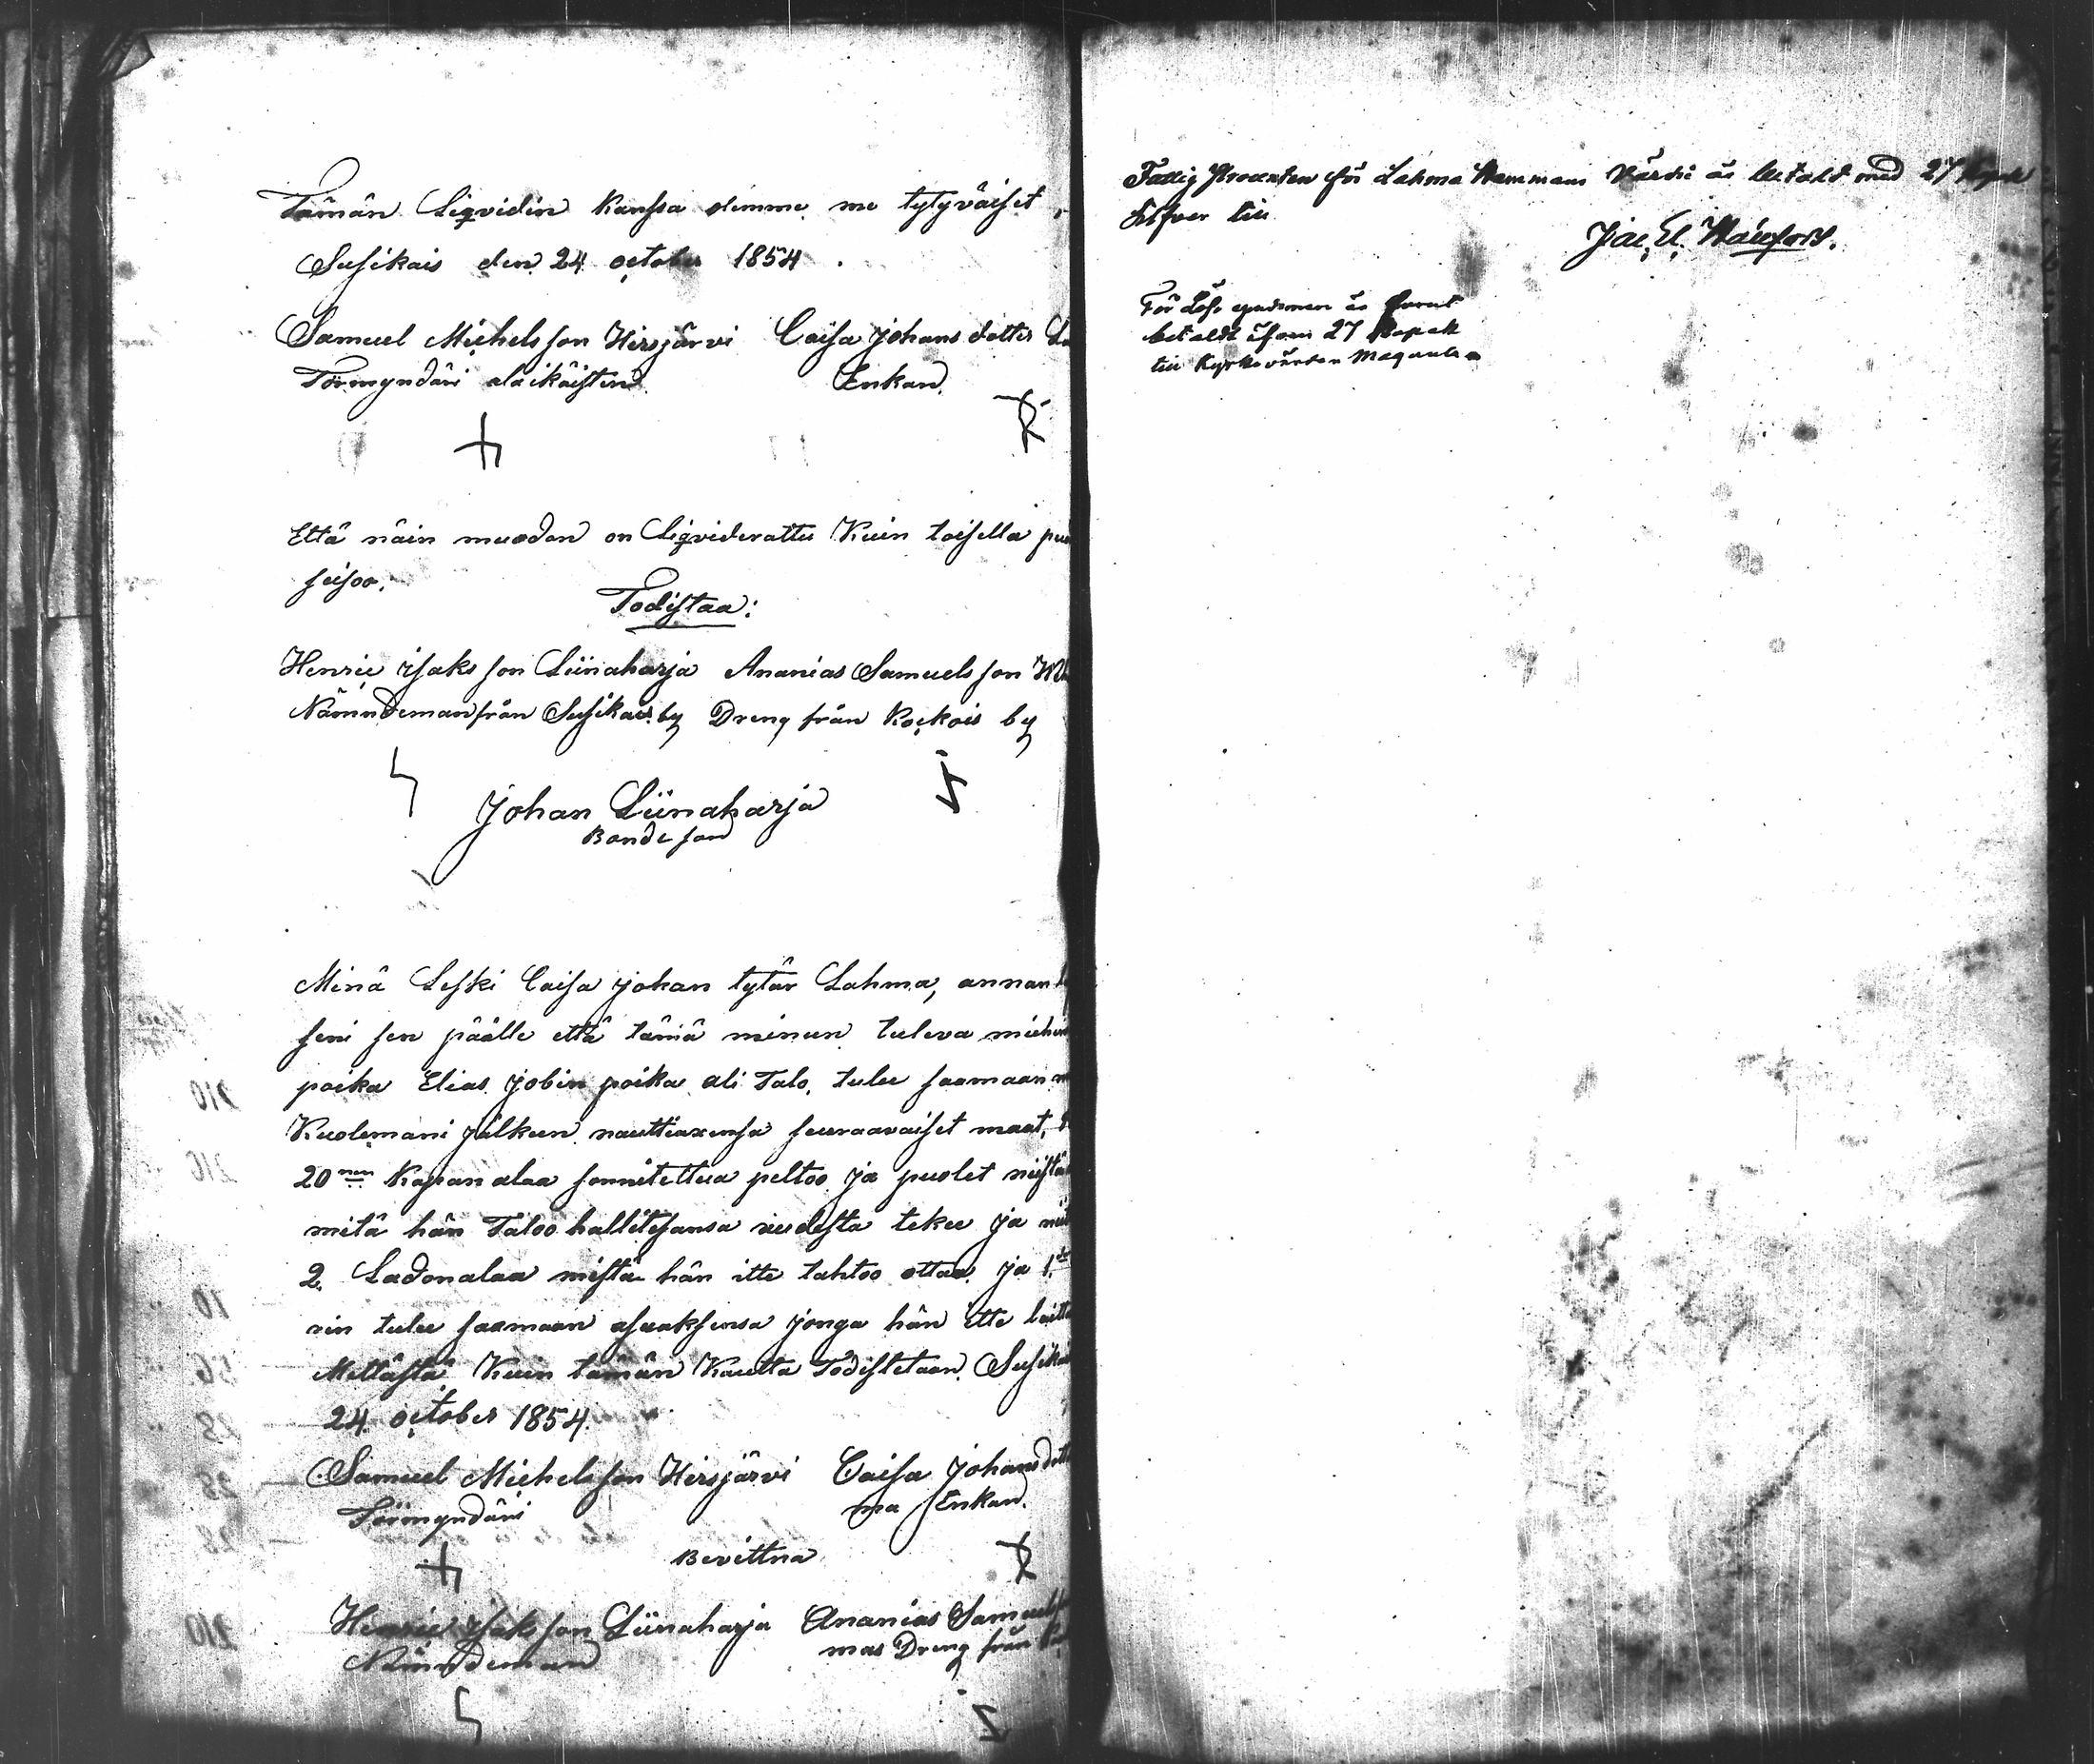 Tämän Liqvidin kanssa olemme me tytyväiset,
Susikais den 24 october 1854.
Samuel Michelsson Hirsjärvi Caisa Johansdotter
Förmyndäri alaikäisten Enkan
Että näin muodon on Liqviderattu Kuin toisella
seisoo,
Todistaa:
Henric Isaksson Liinaharja Ananias Samuelsson
Nämndeman från Susikais by Dreng från Kockois by
Johan Liinaharja
Bondeson
Minä Leski Caisa Johan tytär Lahma, annan
seni sen päälle että tämä minun tuleva
poika Elias Jobin poika ali Talo, tulee saamaan
Kuolemani jälkeen nauttiaxensa seuraavaiset maat,
20nen Kapan alaa sonnitettua peltoo ja puolet niistä
mitä hän Taloo hallitesansa uudesta tekee ja
2 Ladonalaa mistä hän itte tahtoo ottaa ja 1
nin tulee saamaan asuaksensa jonga hän itte
Mettästä Kuin tämän Kautta Todistetaan
24 october 1854.
Samuel Michelsson Hirsjärvi Caisa Johans
Förmyndäri ma Enkan.
Bevittna
Henric Isaksson Liinaharja Ananias
Nämndeman mas Dreng från
Fattig Procenten för Lahma Hemmans Värdi är betalt med 27
Silfver till
Jac. El.
För
betaldt 27 Kopek
till Kyrkovärden